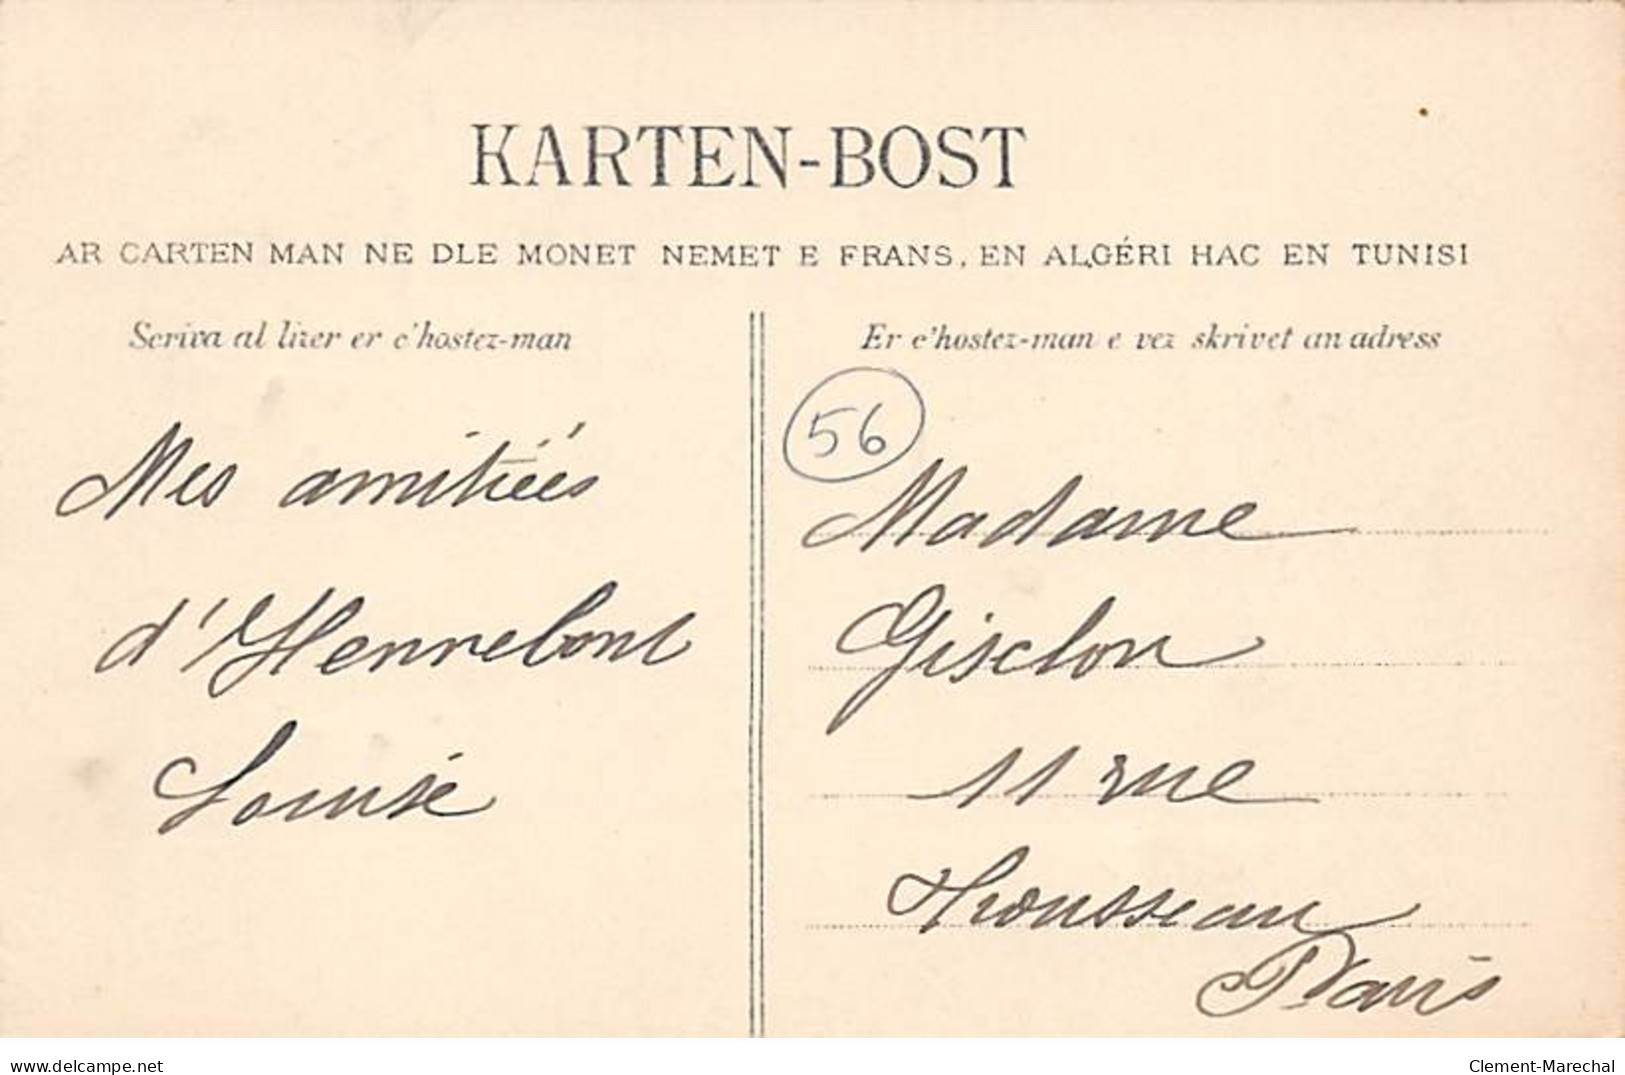 KARTEN-BOST
AR CARTEN MAN NE DLE MONET NEMET E FRANS, EN ALGÉRI HAC EN TUNISI
Scriva al lizer er c'hostez-man
Er c'hostez-man e vez skrivet an adress
56
Mes amitiées
d'Hennebont
Louise
Madame
Gisclon
11 rue
Trousseau
Paris
www.delcampe.net
Clement-Marechal